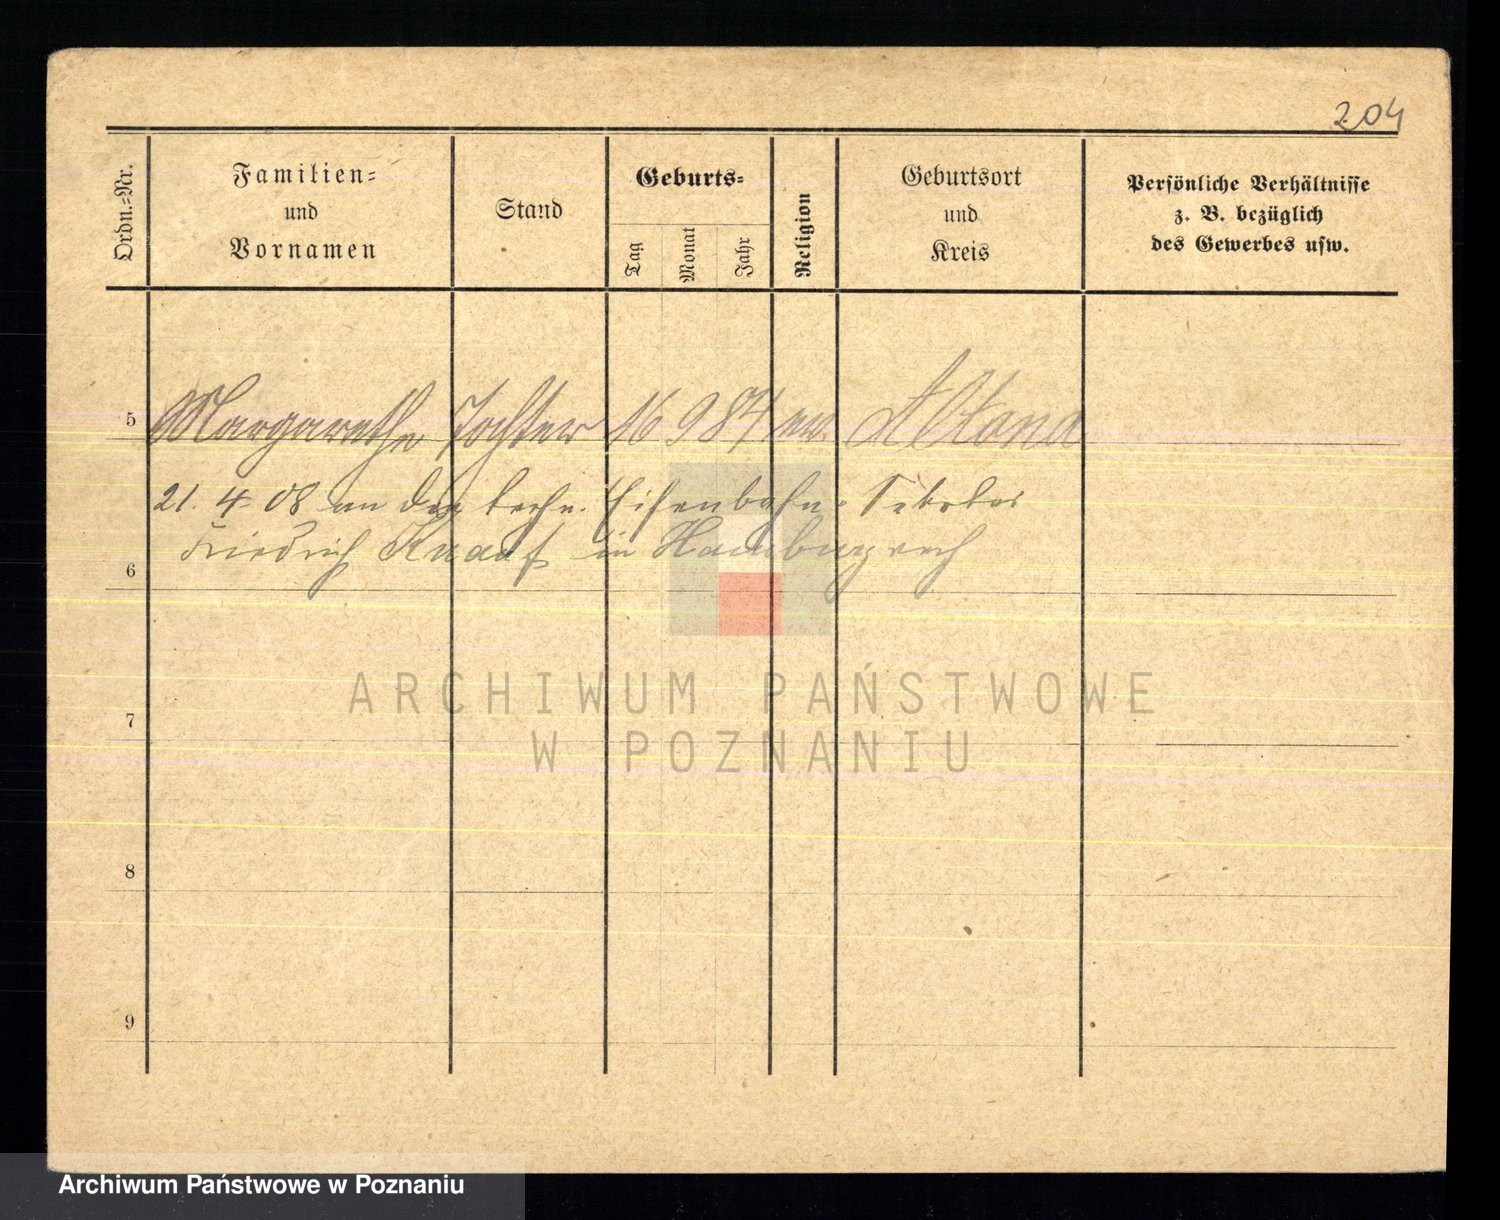 204
Ordn.-Nr.
Familien-
und
Vornamen
Stand
Geburts-
Tag
Monat
Jahr
Religion
Geburtsort
und
Kreis
Persönliche Verhältnisse
z. B. bezüglich
des Gewerbes usw.
5 Margarethe Tochter 16 9 84 ev. Altona
21. 4. 08 an den techn. Eisenbahn-Sekretär
Friedrich Knaaf in Hamburg verh
6
7
8
9
ARCHIWUM PAŃSTWOWE
W POZNANIU
Archiwum Państwowe w Poznaniu